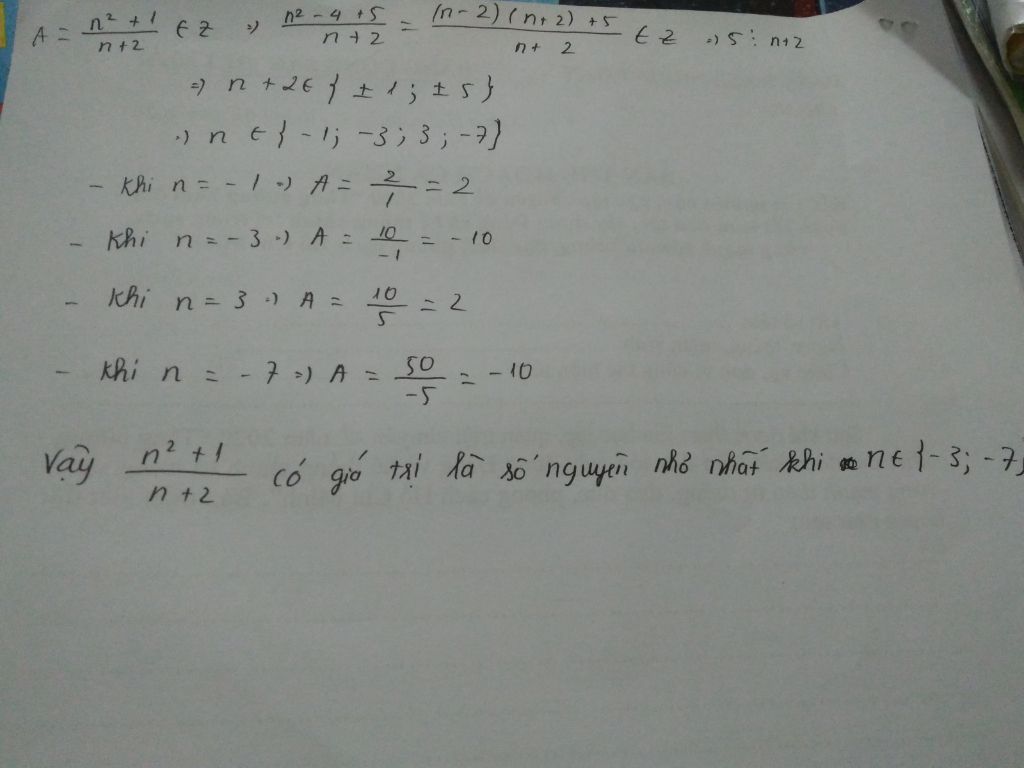 A = n² + 1 / n + 2 ∈ Z ⇒ n² - 4 + 5 / n + 2 = (n - 2) (n + 2) + 5 / n + 2 ∈ Z ⇒ 5 ⋮ n + 2
⇒ n + 2 ∈ { ± 1 ; ± 5 }
⇒ n ∈ { - 1 ; - 3 ; 3 ; - 7 }
- Khi n = - 1 ⇒ A = 2 / 1 = 2
- Khi n = - 3 ⇒ A = 10 / -1 = - 10
- Khi n = 3 ⇒ A = 10 / 5 = 2
- Khi n = - 7 ⇒ A = 50 / -5 = - 10
Vậy n² + 1 / n + 2 có giá trị là số nguyên nhỏ nhất khi n ∈ { - 3 ; - 7 }